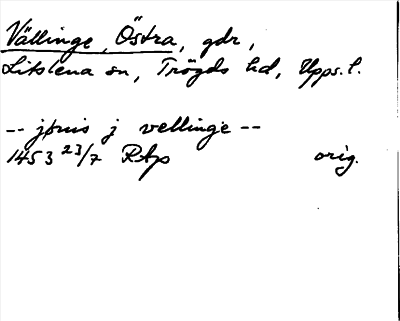 Vällinge, Östra, gdr,
Litslena sn, Trögds hd, Upps. l.
-- jønis j vellinge --
1453 23/7 RAp orig.